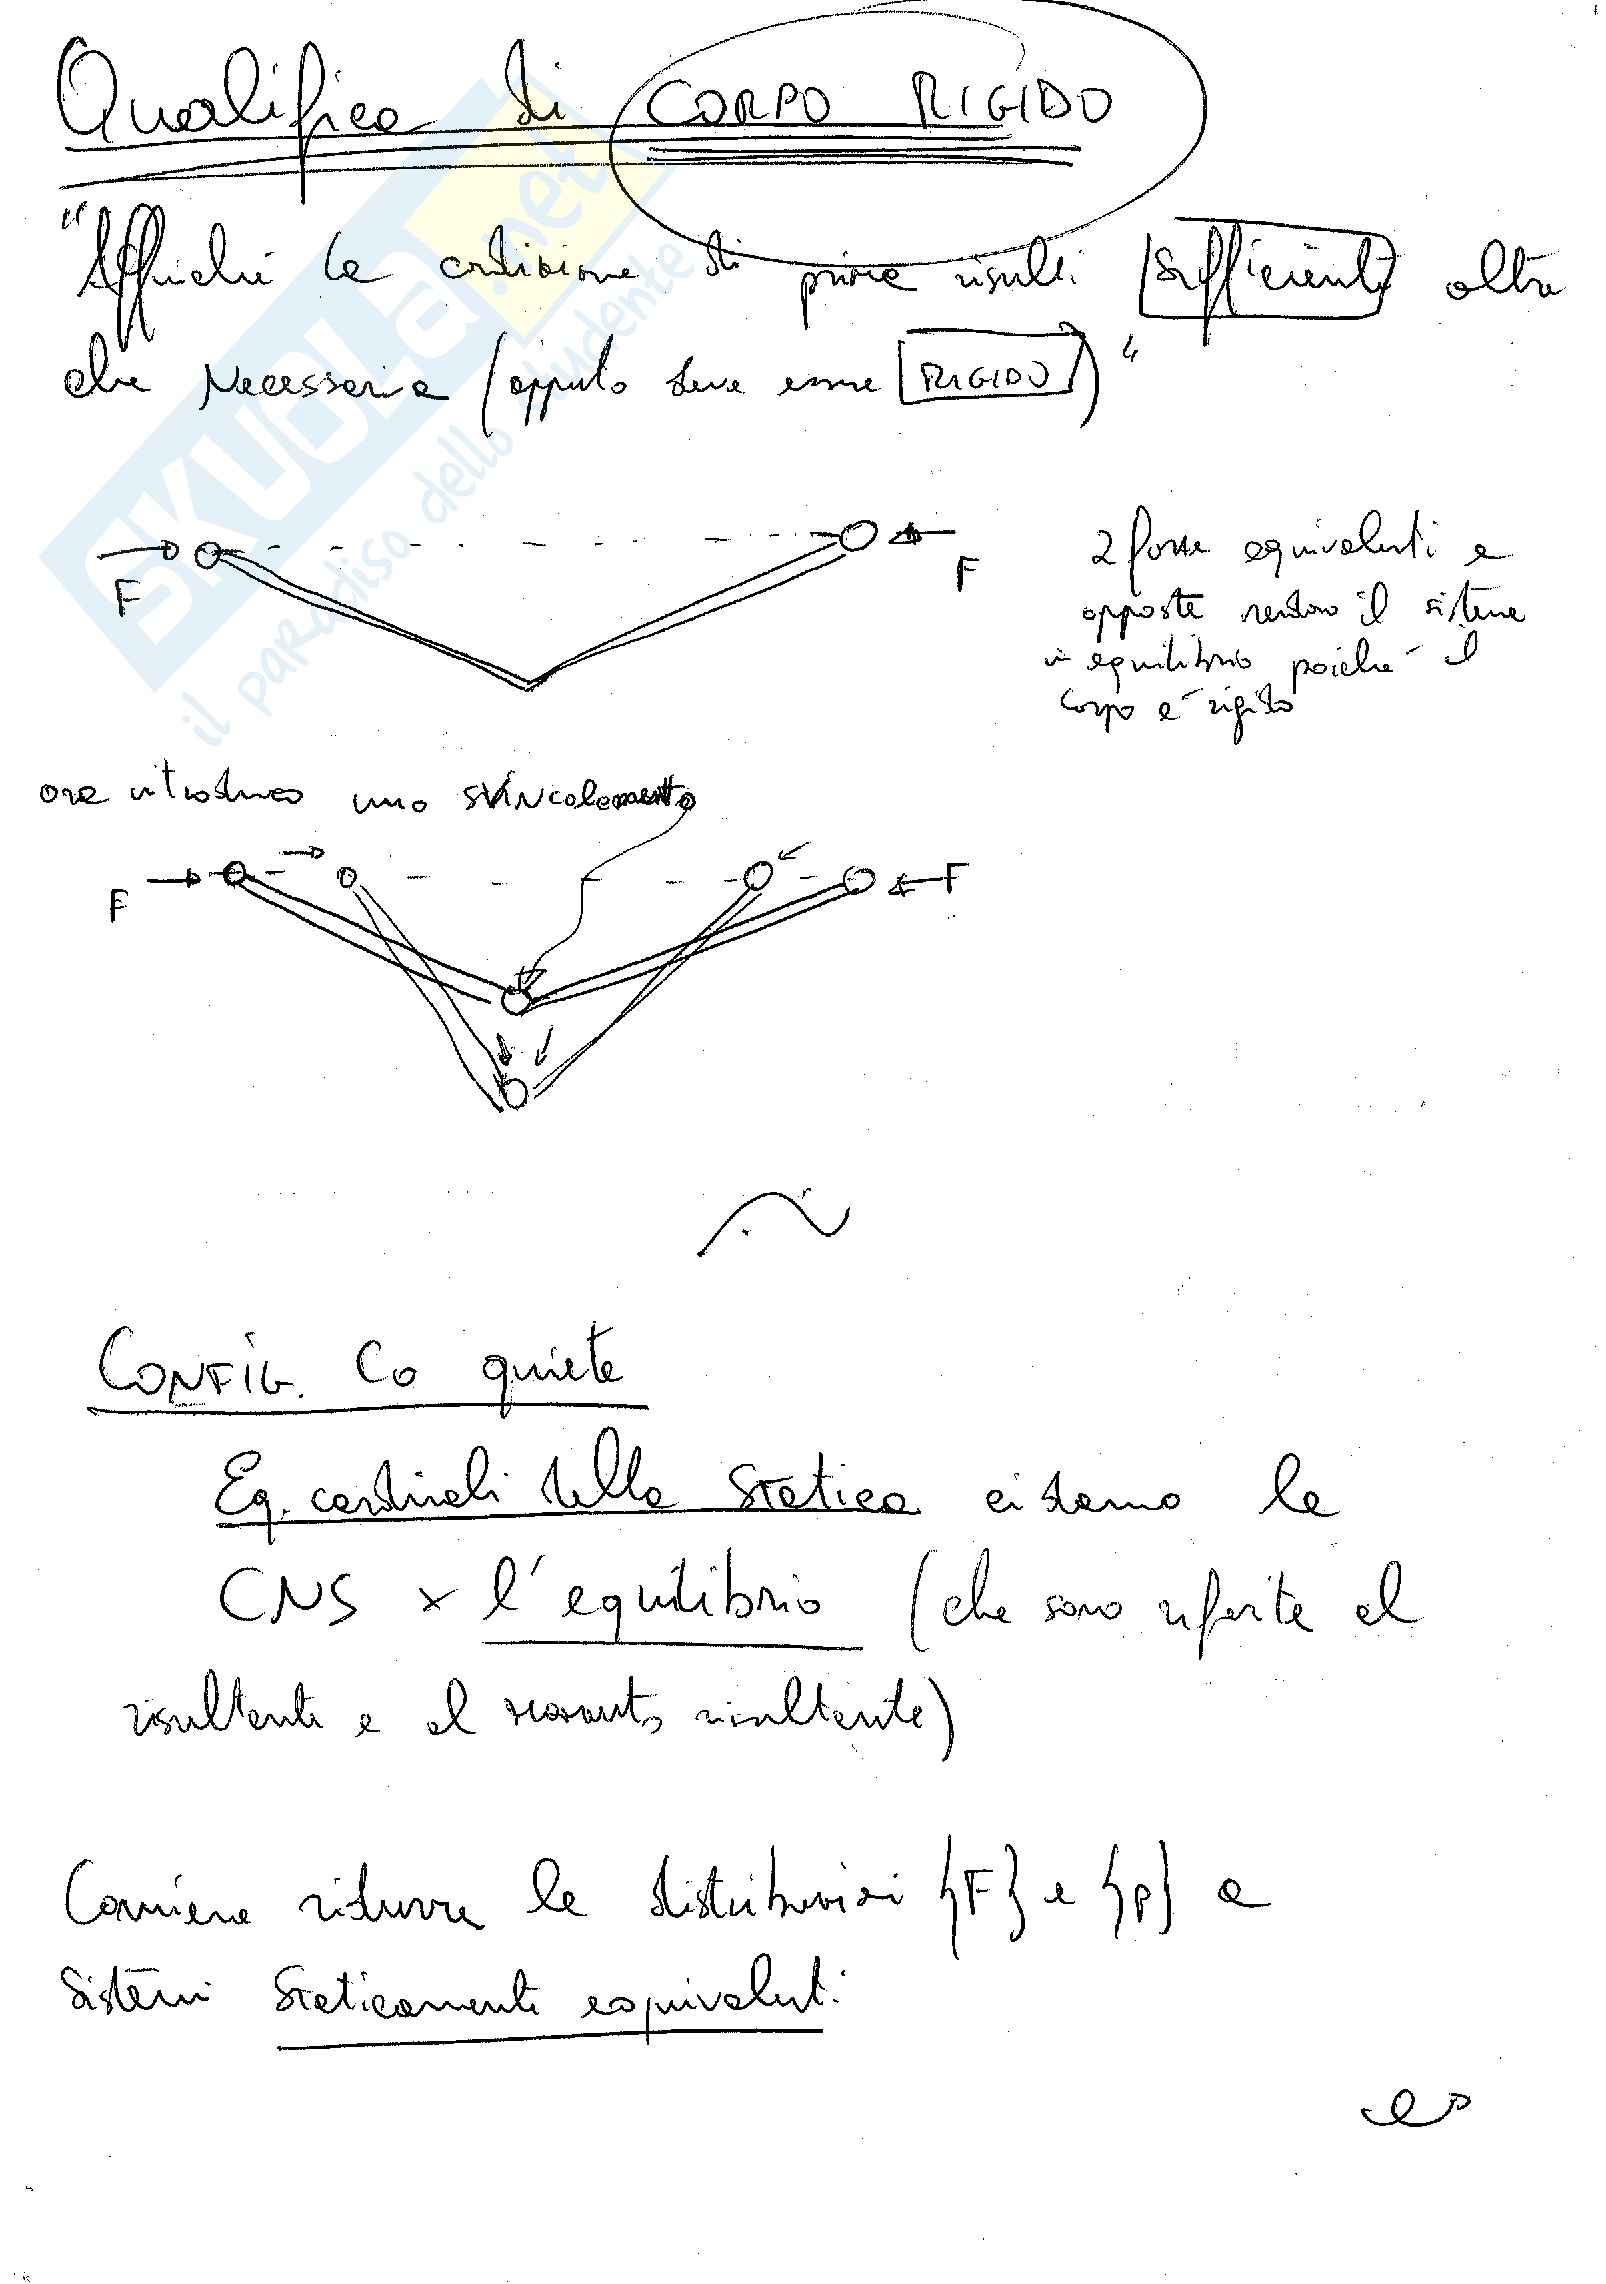 Qualifica di CORPO RIGIDO
"Affinché la condizione di prima risulti sufficiente oltre
che Necessaria (appunto deve essere RIGIDO)"
F
F
2 forze equivalenti e
opposte rendono il sistema
in equilibrio poiché il
corpo è rigido
ora introduco uno svincolamento
F
F
CONFIG. Co quiete
Eq. cardinali della Statica ci danno la
CNS x l'equilibrio (che sono riferite al
risultante e al momento risultante)
Conviene ridurre le distribuzioni {F} e {p} a
Sistemi Staticamente equivalenti
SKUOLA.net
il paradiso dello studente